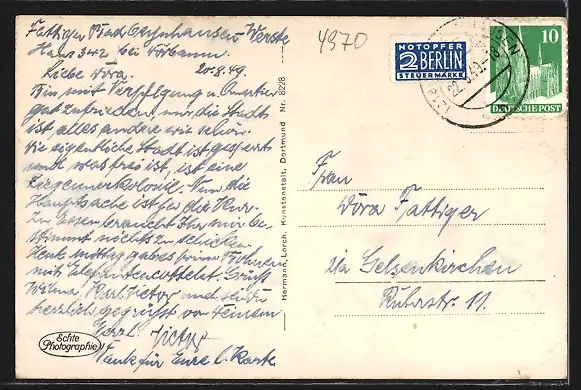 Fattiger Bad Oeynhausen-Werste
Haus 342 bei
20.8.49.
Liebe Dora.
Bin mit Verpflegung u. Quartier
gut zufrieden, nur die Stadt
ist alles andere wie schön.
Die eigentliche Stadt ist gesperrt
und was frei ist, ist eine
Zigeunerkolonie. Nun die
Hauptsache ist ja die Kur.
Zu Essen braucht Ihr mir be-
stimmt nichts zu schicken.
Heute mittag gab es Bohnen
mit Gruß
Karl Victor und sei Du
herzlich gegrüßt von Deinem
Victor
Dank für Eure l. Karte
4970
NOTOPFER
2 BERLIN
STEUERMARKE
10
DEUTSCHE POST
Frau
Dora Fattiger
Gelsenkirchen
Ruhrstr. 11.
Hermann Lorch, Kunstanstalt, Dortmund Nr. 8228
Echte
Photographie